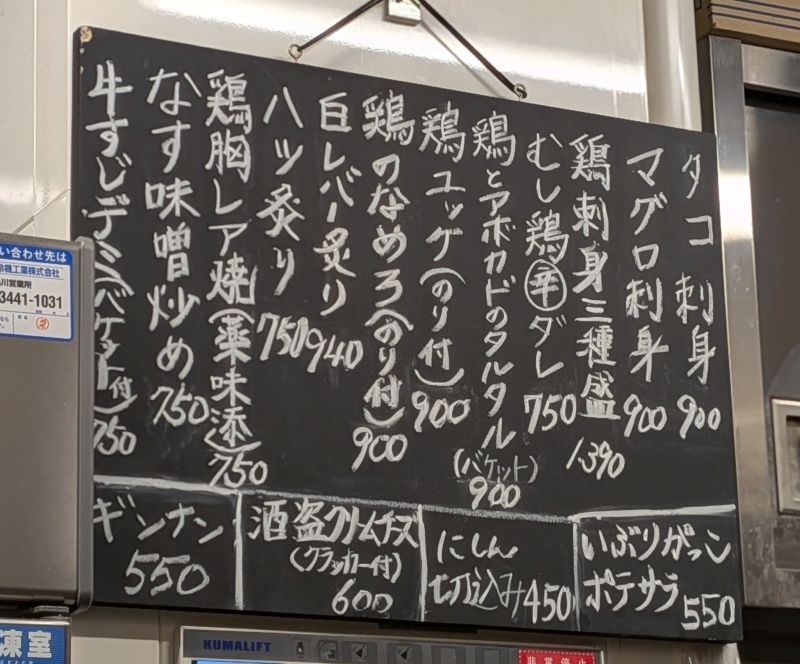 タコ刺身 900
マグロ刺身 900
鶏刺身三種盛 1.390
むし鶏辛ダレ 750
鶏とアボカドのタルタル(バケット) 900
鶏ユッケ(のり付) 900
鶏のなめろ(のり付) 900
白レバー炙り 940
ハツ炙り 750
鶏胸レア焼(薬味添) 750
なす味噌炒め 750
牛すじデミ(バケット付) 750
いぶりがっこ
ポテサラ 550
にしん
切込み 450
酒盗クリームチーズ
(クラッカー付)
600
ギンナン
550
い合わせ先は
冷機工業株式会社
川営業所
3441-1031
凍室
KUMALIFT
非常停止